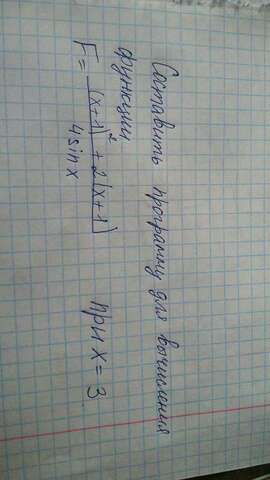 Составить программу для вычисления
функции
F = \frac{(x+1)^2 + 2(x+1)}{4 sin x} при x = 3.